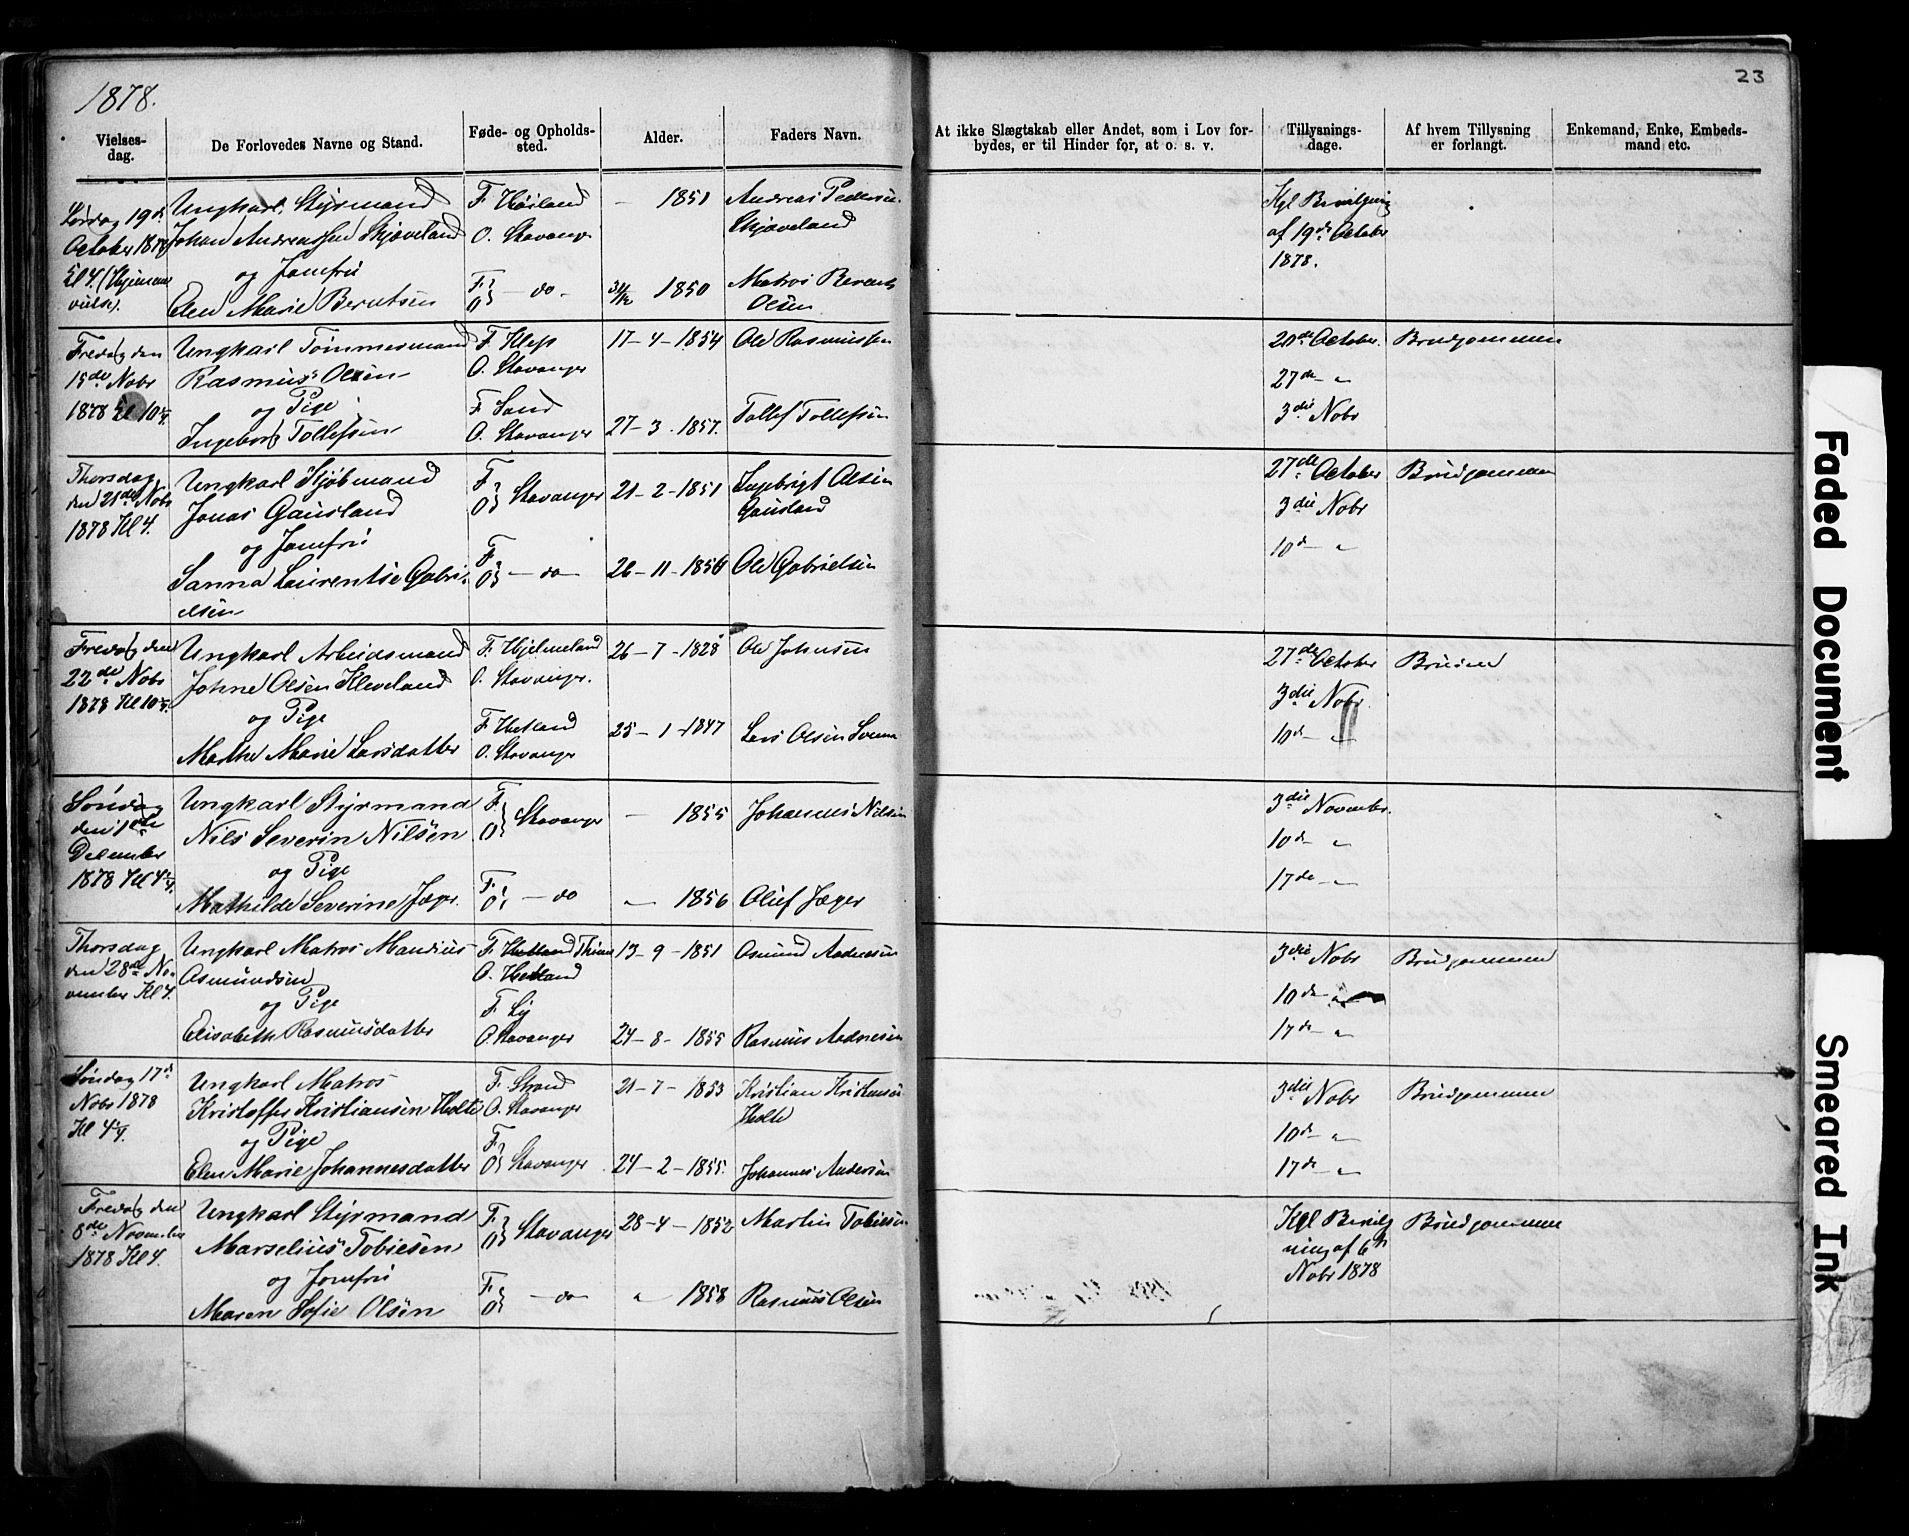 1878.
23
Vielses-
dag.
De Forlovedes Navne og Stand.
Føde- og Opholds-
sted.
Alder.
Faders Navn.
At ikke Slægtskab eller Andet, som i Lov for-
bydes, er til Hinder for, at o. s. v.
Tillysnings-
dage.
Af hvem Tillysning
er forlangt.
Enkemand, Enke, Embeds-
mand etc.
Lørdag 19de
October 1878
Kl 4. (Hjemme
vielse).
Ungkarl, Styrmand
Johan Andreassen Skjæveland
og Jomfru
Elen Marie Berntsen
F. Høiland
O. Stavanger
F. O. - do -
- 1851
31/12 1850
Andreas Pedersen
Skjæveland
Matros Bernt
Olsen
Kgl Bevilgning
af 19de October
1878.
Fredag den
15de Nobr
1878 Kl 10
Ungkarl Tømmermand
Rasmus Olsen
og Pige
Ingeborg Tollefsen
F. Klep
O. Stavanger
F. Sand
O. Stavanger
17-4-1854
27-3-1857.
Ole Rasmussen
Tollef Tollefsen
20de October.
27de - "
3die Nobr
Brudgommen
Thorsdag
den 21de Nobr
1878 Kl 4.
Ungkarl Kjøbmand
Jonas Gausland
og Jomfru
Sanna Laurentse Gabri-
elsen
F. O. Stavanger
F. O. - do -
21-2-1851
26-11-1856
Ingebrigt Olsen
Gausland
Ole Gabrielsen
27de October
3die Nobr
10de - "
Brudgommen
Fredag den
22de Nobr
1878 Kl 10
Ungkarl Arbeidsmand
Johne Olsen Kleveland
og Pige
Marthe Marie Larsdatter
F. Hjelmeland
O. Stavanger.
F. Hetland
O. Stavanger
26-7-1828
25-1-1847
Ole Johnsen
Lars Olsen
27de October
3die Nobr.
10de - "
Bruden
Søndag
den 1ste
December
1878 Kl 4
Ungkarl Styrmand
Nils Severin Nilsen
og Pige
Mathilde Severine Jæger.
F. O. Stavanger
F. O. - do
- 1855
- 1856
Johannes Nilsen
Oluf Jæger
3die Novembr.
10de - "
17de - "
Thorsdag
den 28de No-
vember Kl 4.
Ungkarl Matros Mandius
Osmundsen
og Pige
Elisabeth Rasmusdatter
F. Hetland
O. Hetland
F. Ly
O. Stavanger
13-9-1851
24-8-1855
Osmund Aadnesen
Rasmus Aadnesen
3die Nobr
10de - "
17de - "
Brudgommen
Søndag 17de
Nobr 1878
Kl 4
Ungkarl Matros
Kristoffer Kristiansen Holte
og Pige
Elen Marie Johannesdatter
F. Strand
O. Stavanger
F. O. Stavanger.
21-7-1853
24-2-1855.
Kristian Kristiansen
Holte
Johannes Andersen
3die Nobr
10de - "
17de - "
Brudgommen
Fredag den
8de November
1878 Kl 4.
Ungkarl Styrmand
Marselius Tobiesen
og Jomfru
Maren Sofie Olsen
F. O. Stavanger
F. O. - do
28-4-1852
" 1858
Martin Tobiesen
Rasmus Olsen
Kgl Bevilg
ning af 6te
Nobr 1878
Brudgommen
Faded Document
Smeared Ink